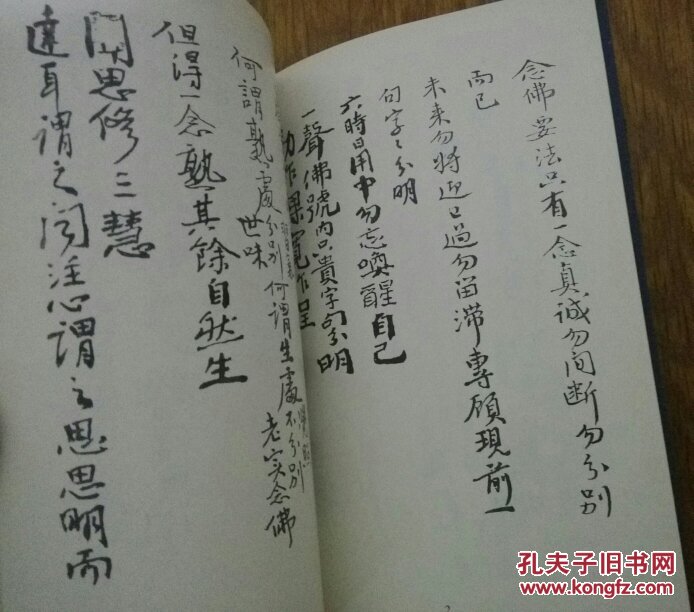 念佛要法只有一念真诚勿间断勿分别
而已
未来勿将迎已過勿留滞專願現前一
句字〻分明
六時日用中勿忘喚醒自己
一聲佛號内只貴字句分明
功作課寬作呈
何謂熟處分别何謂生處不分别
世味
老实念佛
但得一念熟其餘自然生
聞思修三慧
達耳謂之闻注心謂之思思明而
孔夫子旧书网
www.kongfz.com